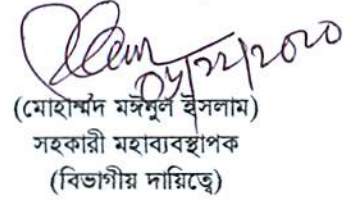 (মোহাম্মদ মঈনুল ইসলাম)
সহকারী মহাব্যবস্থাপক
(বিভাগীয় দায়িত্বে)